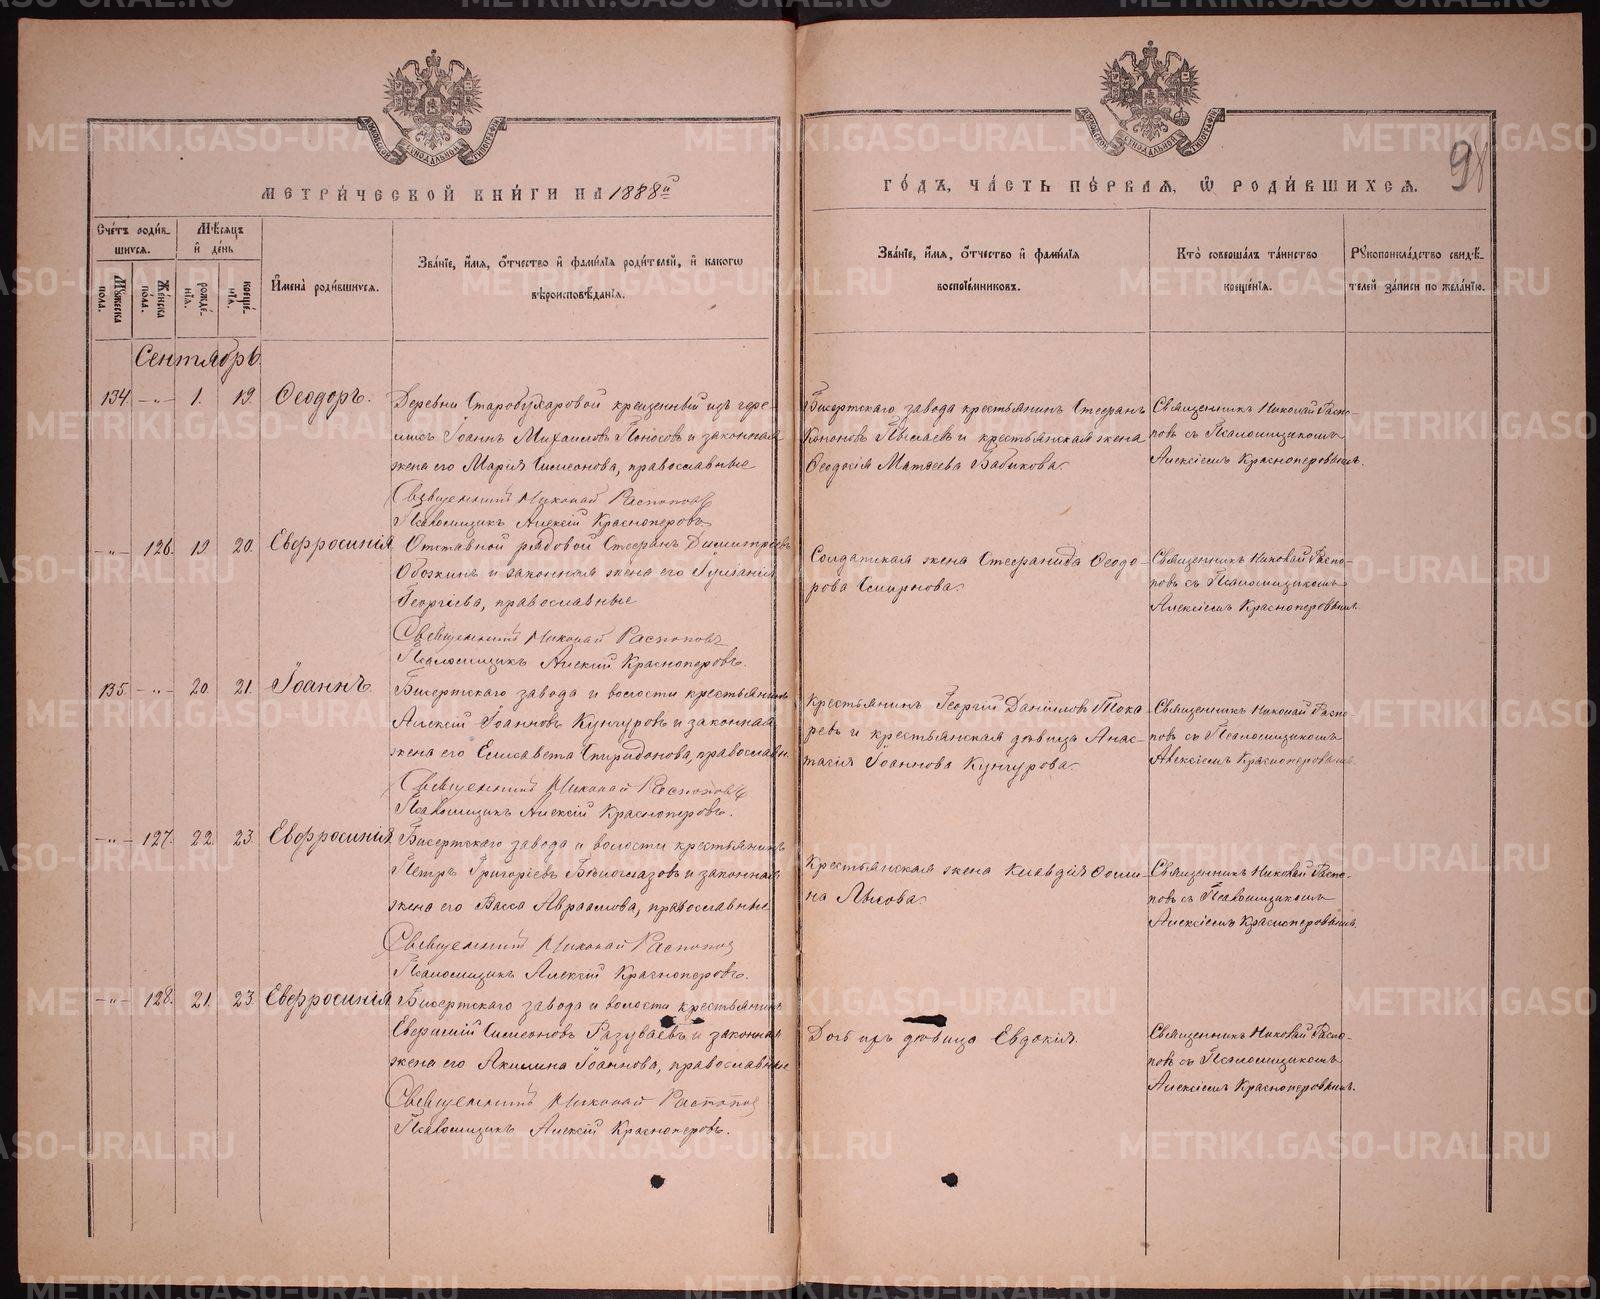 МЕТРИЧЕСКОЙ КНИГИ НА 1888й
ГОДЪ, ЧАСТЬ ПЕРВАЯ, Ѿ РОДИВШИХСЯ.
98
Счетъ родившихся.
Мужеска пола.
Женска пола.
Мѣсяцъ и день
рожденія.
крещенія.
Имена родившихся.
Званіе, имя, отчество и фамилія родителей, и какогѡ
вѣроисповѣданія.
Званіе, имя, отчество и фамилія
воспріемниковъ.
Кто совершалъ таинство
крещенія.
Рукоприкладство свидѣ-
телей записи по желанію.
Сентябрь.
134. -„- 1. 19. Ѳеодоръ.
Деревни Старобухаровой крещенный изъ чере-
мисъ Іоаннъ Михаиловъ Поносовъ и законная
жена его Марія Симеонова, православные
Священникъ Николай Распоповъ
Псаломщикъ Алексій Красноперовъ
Бисертскаго завода крестьянинъ Стефанъ
Кононовъ Пылаевъ и крестьянская жена
Ѳеодосія Матѳеева Бабикова.
Священникъ Николай Распо-
повъ съ Псаломщикомъ
Алексіемъ Красноперовымъ.
-„- 126. 19. 20. Евфросинія
Отставной рядовой Стефанъ Димитріевъ
Обожинъ и законная жена его Іуліанія
Георгіева, православные
Священникъ Николай Распоповъ
Псаломщикъ Алексій Красноперовъ.
Солдатская жена Стефанида Ѳеодо-
рова Смирнова.
Священникъ Николай Распо-
повъ съ Псаломщикомъ
Алексіемъ Красноперовымъ.
135. -„- 20. 21. Іоаннъ
Бисертскаго завода и волости крестьянинъ
Алексій Іоанновъ Кунгуровъ и законная
жена его Елисавета Спиридонова, православн.
Священникъ Николай Распоповъ
Псаломщикъ Алексій Красноперовъ.
Крестьянинъ Георгій Даніиловъ Тока-
ревъ и крестьянская дѣвица Анас-
тасія Іоаннова Кунгурова.
Священникъ Николай Распо-
повъ съ Псаломщикомъ
Алексіемъ Красноперовымъ.
-„- 127. 22. 23. Евфросинія
Бисертскаго завода и волости крестьянинъ
Петръ Григоріевъ Бѣлоглазовъ и законная
жена его Васса Авраамова, православные
Священникъ Николай Распоповъ
Псаломщикъ Алексій Красноперовъ.
Крестьянская жена Клавдія Ѳоми-
на Лысова.
Священникъ Николай Распо-
повъ съ Псаломщикомъ
Алексіемъ Красноперовымъ.
-„- 128. 21. 23. Евфросинія
Бисертскаго завода и волости крестьянинъ
Евфимій Симеоновъ Разуваевъ и законная
жена его Акилина Іоаннова, православные
Священникъ Николай Распоповъ
Псаломщикъ Алексій Красноперовъ.
дѣвица Евдокія.
Священникъ Николай Распо-
повъ съ Псаломщикомъ
Алексіемъ Красноперовымъ.
METRIKI.GASO-URAL.RU